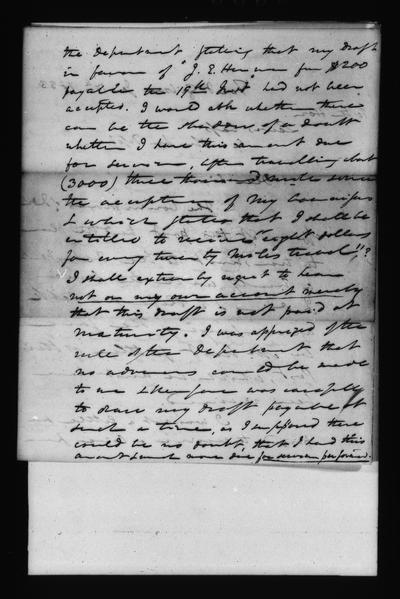 the department stating that my Draft
in favour of "J. E. Herman for $200
payable the 19th Inst had not been
accepted. I would ask whether there
can be the shadow of a doubt
whether I have this amount due
for services, after travelling about
(3000) three thousand miles since
the acceptance of my Commission
& which states that I shall be
entitled to receive "eight dollars
for every twenty miles travel"!?
I shall extremely regret to learn
not on my own account merely
that this draft is not paid at
maturity. I was apprized of the
rule of the department that
no advances could be made
to me & therefore was careful
to draw my draft payable at
such a time, as I supposed there
could be no doubt, that I had this
amount & much more due for services performed.